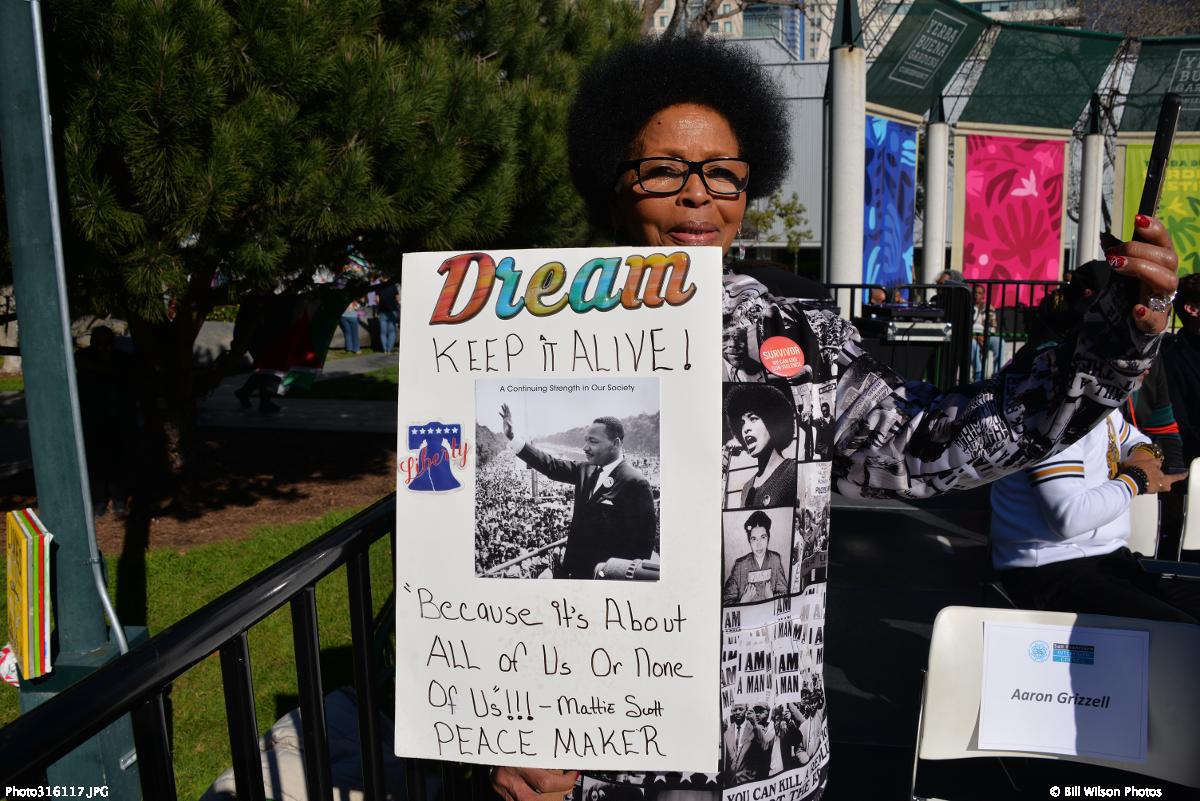 YERBA
BUENA
GARDENS
CONSERVANCY
Dream
KEEP iT ALIVE!
A Continuing Strength in Our Society
Liberty
"Because it's About
ALL of Us Or None
Of Us"!!! - Mattie Scott
PEACE MAKER
SURVIVOR
I AM
A MAN
I AM
A MAN
YOU CAN KILL A
San Francisco
INTERFAITH
COUNCIL
Aaron Grizzell
Photo316117.JPG
© Bill Wilson Photos